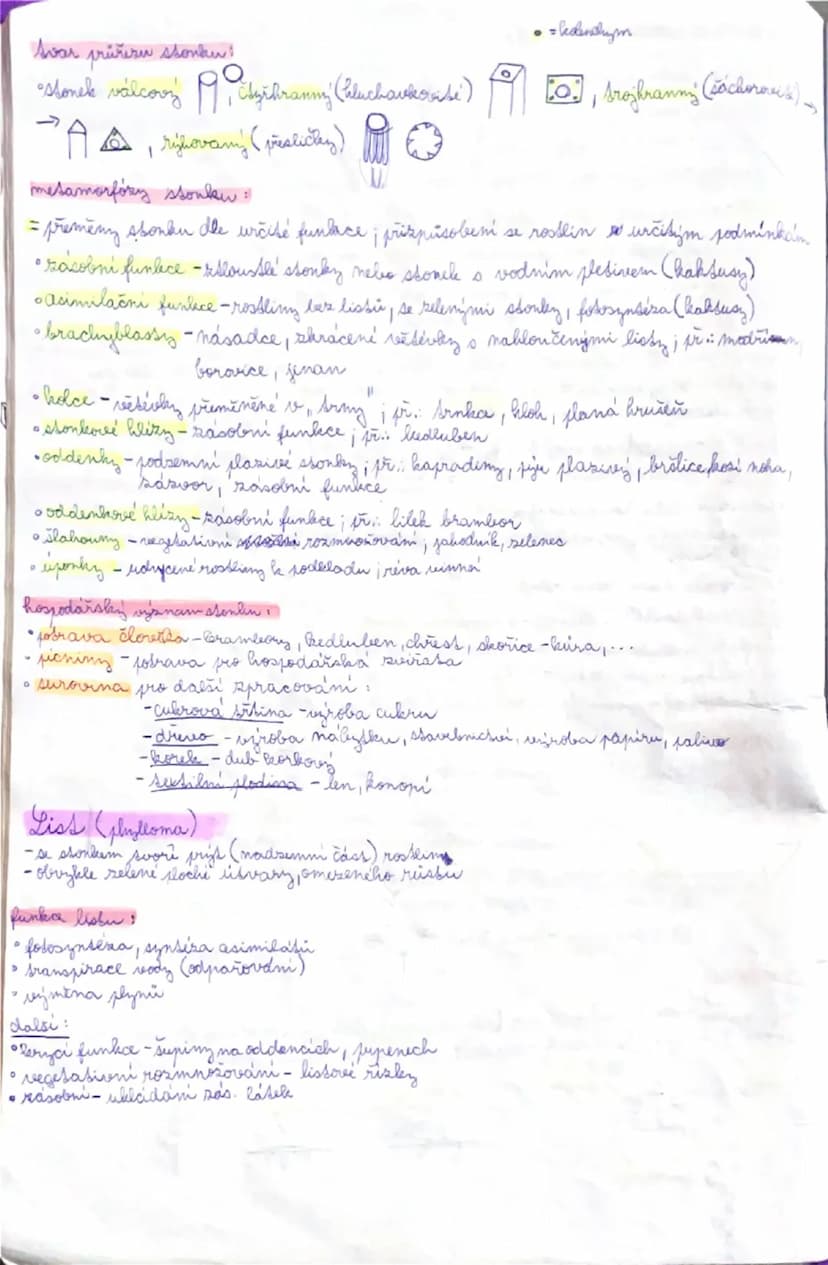 • = kolenchym
tvar průřezu stonku:
• stonek válcový , čtyřhranný (hluchavkovité) , trojhranný (šáchorovité) →
→ , rýhovaný (přesličky)
metamorfózy stonku:
= přeměny stonku dle určité funkce; přizpůsobení se rostlin určitým podmínkám
• zásobní funkce - ztloustlé stonky nebo stonek s vodním pletivem (kaktusy)
• asimilační funkce - rostliny bez listů, se zelenými stonky, fotosyntéza (kaktusy)
• brachyblasty - násadce, zkrácené větévky s nahloučenými listy; př.: modřín,
borovice, jinan
• kolce - větévky přeměněné v „trny"; př.: trnka, hloh, planá hrušeň
• stonkové hlízy - zásobní funkce; př.: kedluben
• oddenky - podzemní plazivé stonky; př.: kapradiny, pýr plazivý, bršlice kozí noha,
zázvor, zásobní funkce
• oddenkové hlízy - zásobní funkce; př.: lilek brambor
• šlahouny - vegetativní rozmnožování, jahodník, zelenec
• úponky - uchycené rostliny k podkladu; réva vinná
hospodářský význam stonku:
• potrava člověka - brambory, kedluben, chřest, skořice - kůra, ...
• pícniny - potrava pro hospodářská zvířata
• surovina pro další zpracování:
- cukrová třtina - výroba cukru
- dřevo - výroba nábytku, stavebnictví, výroba papíru, palivo
- korek - dub korkový
- textilní plodina - len, konopí
List (phylloma)
- se stonkem tvoří prýt (nadzemní část) rostliny
- obvykle zelené ploché útvary, omezeného růstu
funkce listu:
• fotosyntéza, syntéza asimilátů
• transpirace vody (odpařování)
• výměna plynů
další:
• krycí funkce - šupiny na oddencích, pupenech
• vegetativní rozmnožování - listové řízky
• zásobní - ukládání zás. látek